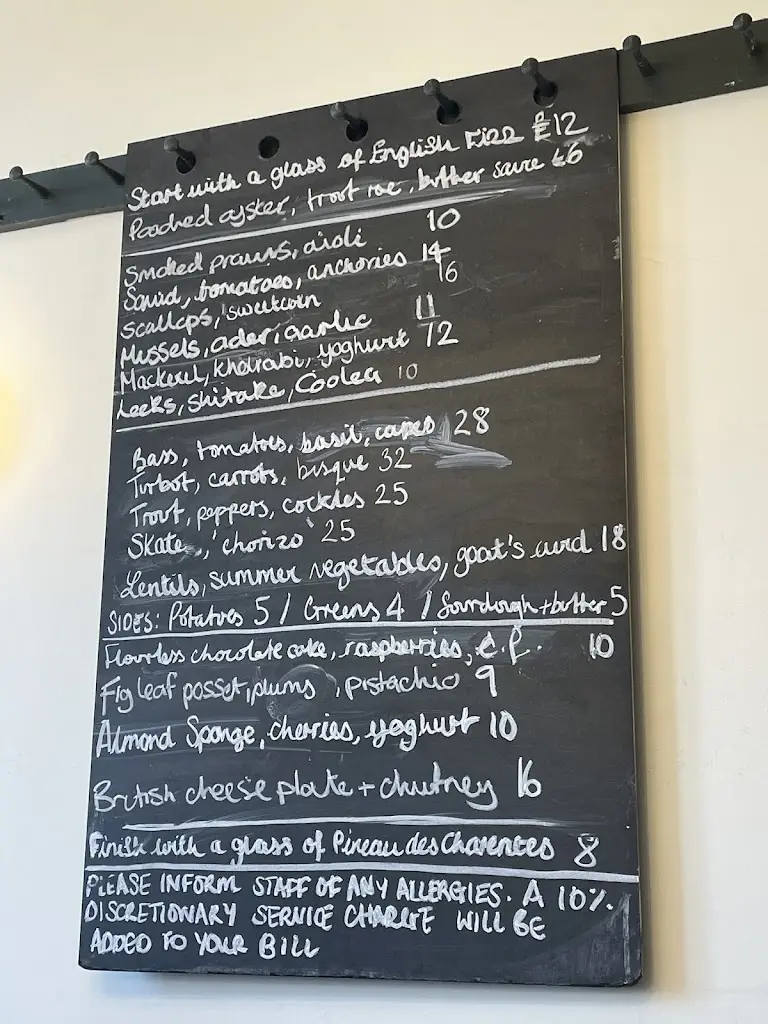 Start with a glass of English Fizz £12
Poached oyster, trout roe, butter sauce £6
Smoked prawns, aioli 10
Squid, tomatoes, anchovies 14
Scallops, sweetcorn 16
Mussels, cider, garlic 11
Mackerel, kholrabi, yoghurt 12
Leeks, shitake, Coolea 10
Bass, tomatoes, basil, capes 28
Turbot, carrots, bisque 32
Trout, peppers, cockles 25
Skate, 'chorizo' 25
Lentils, summer vegetables, goat's curd 18
SIDES: Potatoes 5 / Greens 4 / Sourdough + butter 5
Flourless chocolate cake, raspberries, c.f. 10
Fig leaf posset, plums, pistachio 9
Almond Sponge, cherries, yoghurt 10
British cheese plate + chutney 16
Finish with a glass of Pineau des Charentes 8
PLEASE INFORM STAFF OF ANY ALLERGIES. A 10%
DISCRETIONARY SERVICE CHARGE WILL BE
ADDED TO YOUR BILL